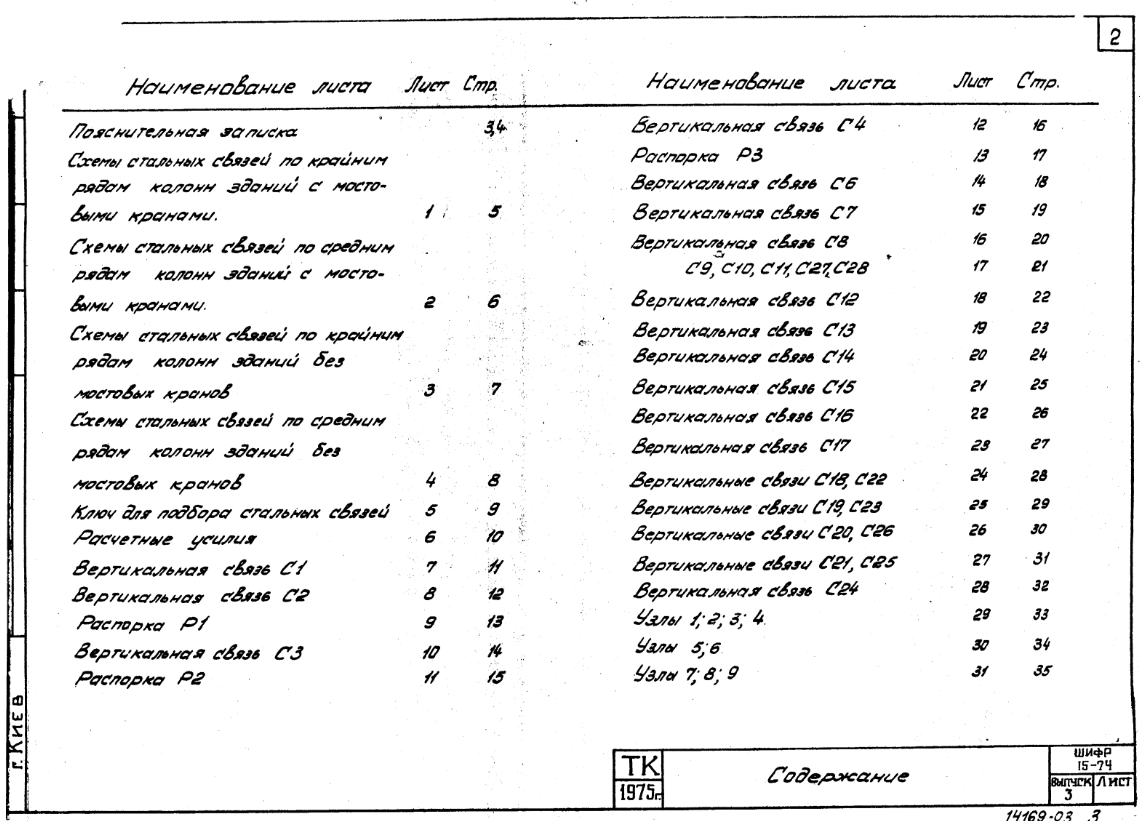 2
Наименование листа Лист Стр.
Пояснительная записка 3,4
Схемы стальных связей по крайним
рядам колонн зданий с мосто-
выми кранами. 1 5
Схемы стальных связей по средним
рядам колонн зданий с мосто-
выми кранами. 2 6
Схемы стальных связей по крайним
рядам колонн зданий без
мостовых кранов 3 7
Схемы стальных связей по средним
рядам колонн зданий без
мостовых кранов 4 8
Ключ для подбора стальных связей 5 9
Расчетные усилия 6 10
Вертикальная связь С1 7 11
Вертикальная связь С2 8 12
Распорка Р1 9 13
Вертикальная связь С3 10 14
Распорка Р2 11 15
Наименование листа Лист Стр.
Вертикальная связь С4 12 16
Распорка Р3 13 17
Вертикальная связь С6 14 18
Вертикальная связь С7 15 19
Вертикальная связь С8 16 20
С9, С10, С11, С27, С28 17 21
Вертикальная связь С12 18 22
Вертикальная связь С13 19 23
Вертикальная связь С14 20 24
Вертикальная связь С15 21 25
Вертикальная связь С16 22 26
Вертикальная связь С17 23 27
Вертикальные связи С18, С22 24 28
Вертикальные связи С19, С23 25 29
Вертикальные связи С20, С26 26 30
Вертикальные связи С21, С25 27 31
Вертикальная связь С24 28 32
Узлы 1; 2; 3; 4. 29 33
Узлы 5; 6 30 34
Узлы 7; 8; 9 31 35
г. Киев
ТК
1975г.
Содержание
шифр
15-74
Выпуск Лист
3
14169-03 3